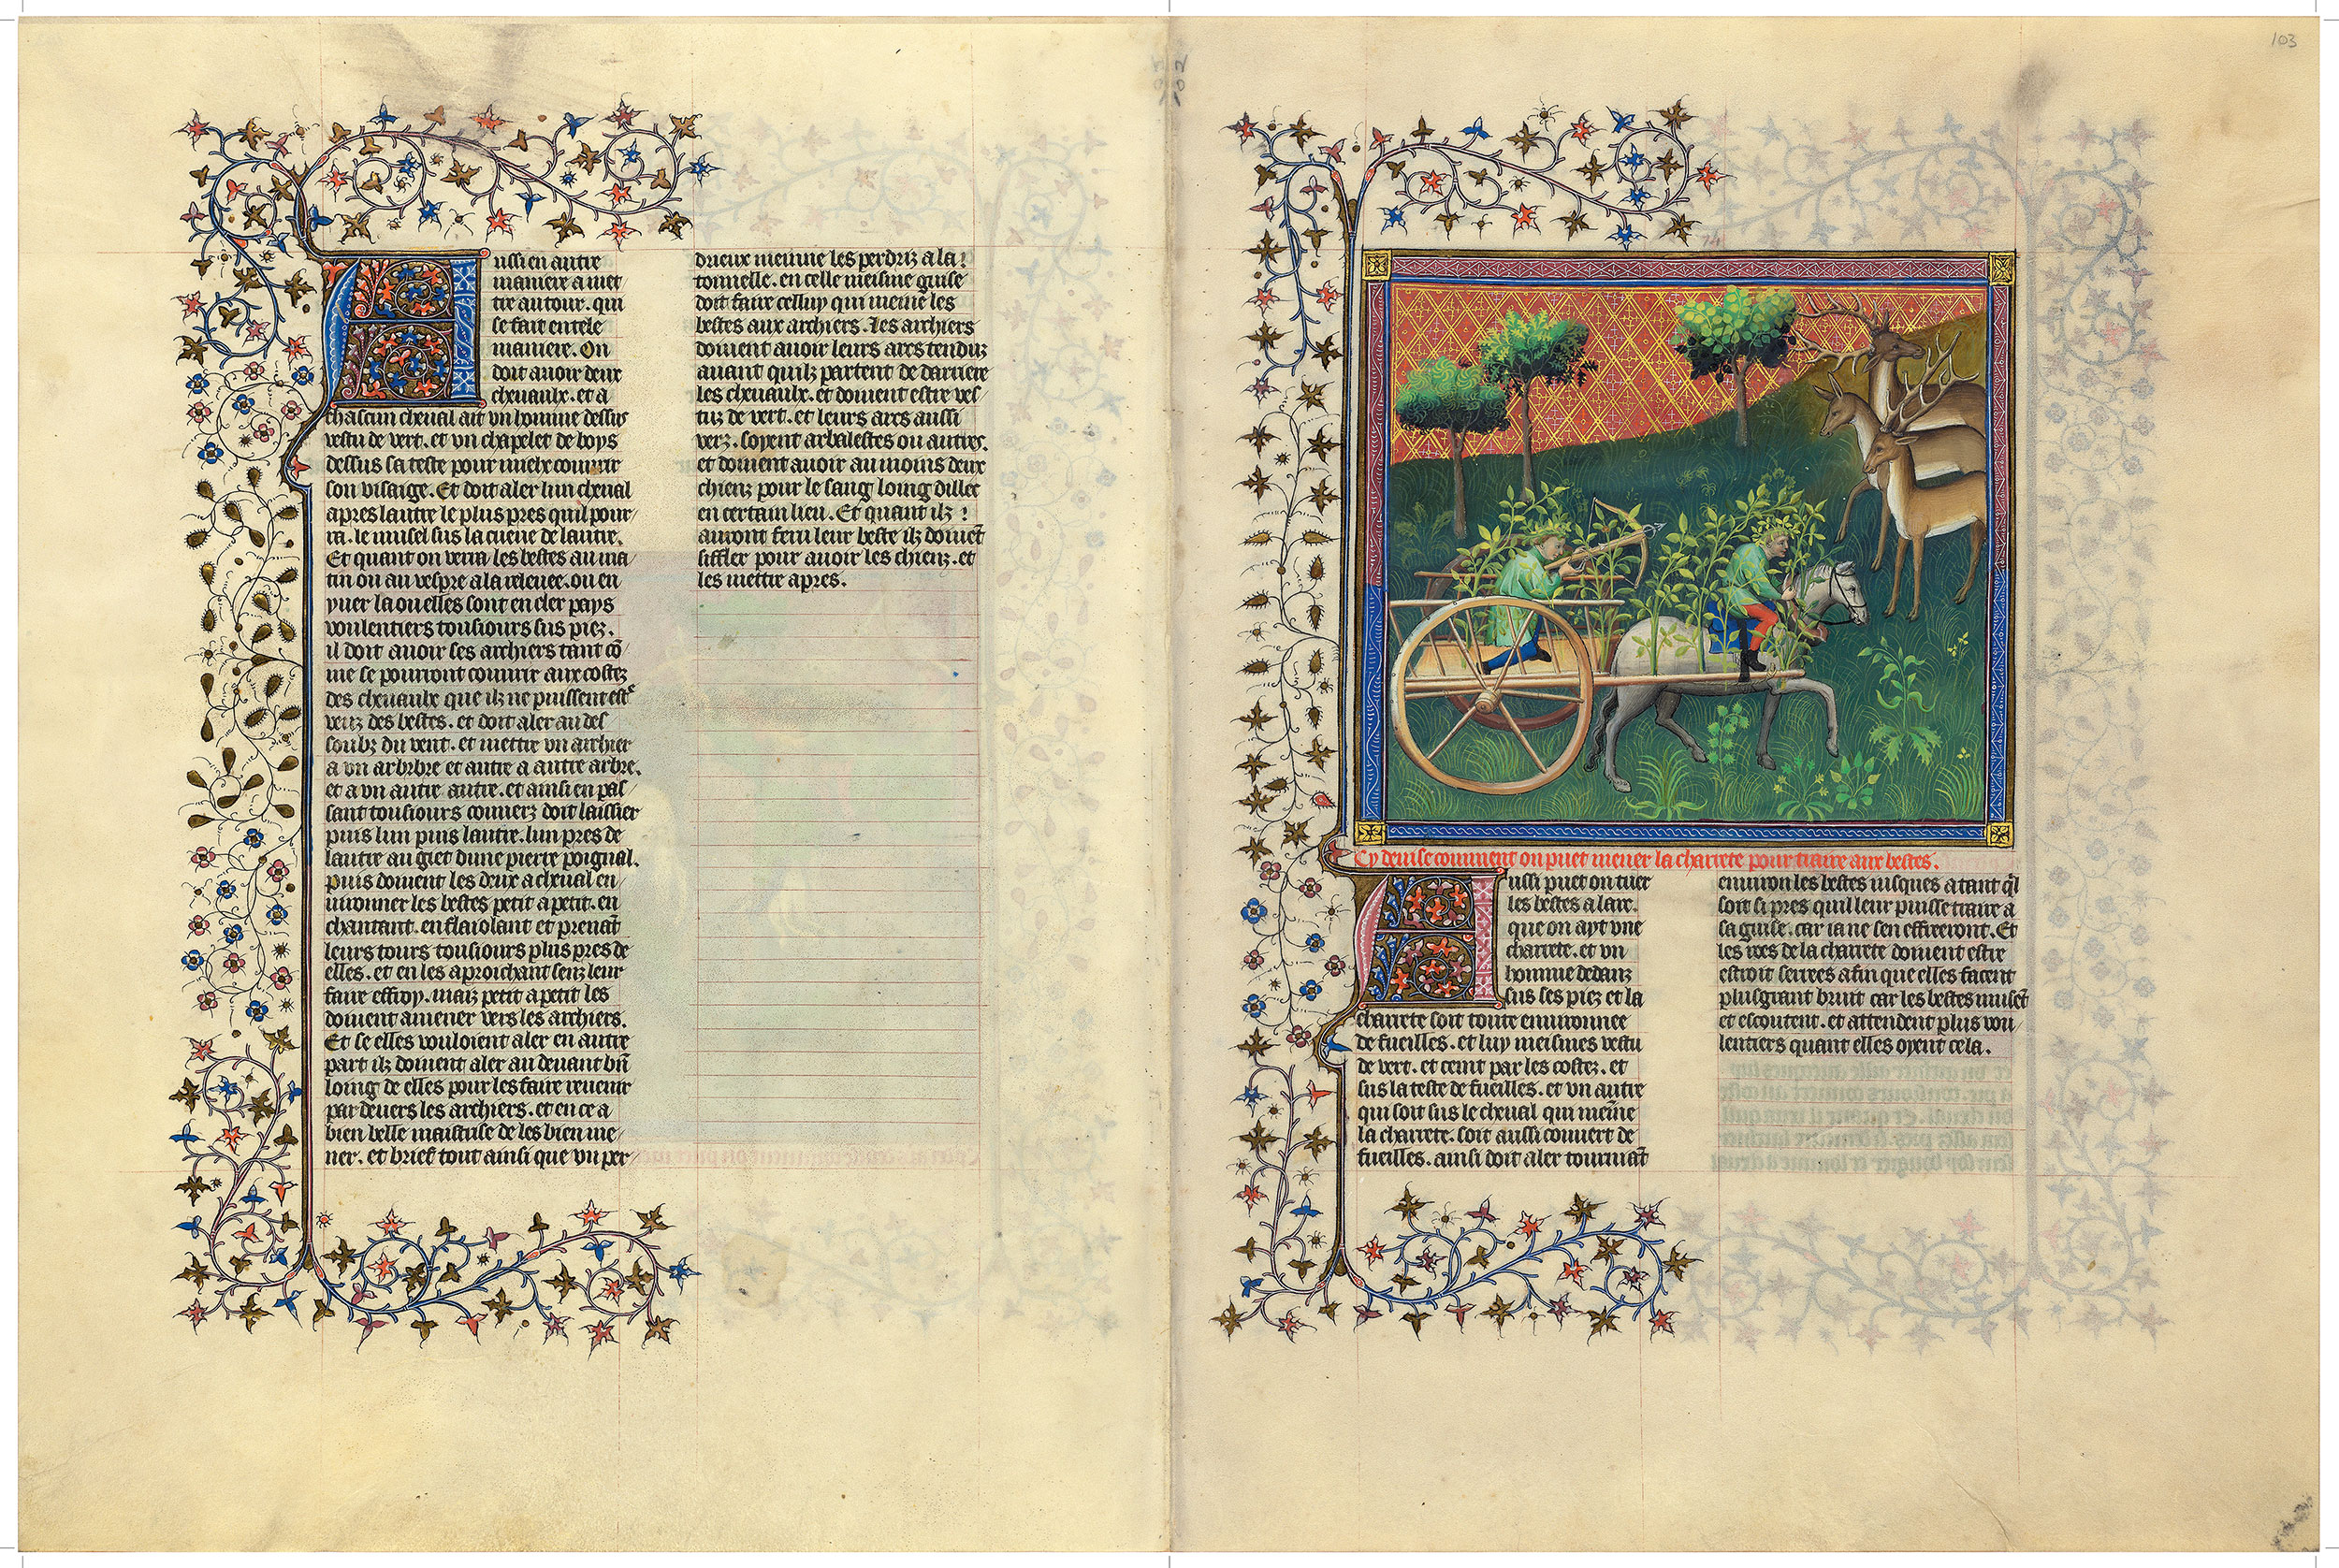 Aussi en autre
maniere a met
tre autour. qui
se fait en tele
maniere. On
doit auoir deux
cheuaulx. et a
chascun cheual ait vn homme dessus
vestu de vert. et vn chapelet de boys
dessus sa teste pour mielx couurir
son visaige. Et doit aler lun cheual
apres lautre le plus pres quil pour/
ra. le musel sus la cueue de lautre.
Et quant on verra les bestes au ma/
tin ou au vespre a la releuee. ou en
yuer la ou elles sont en cler pays
voulentiers tousiours sus piez.
il doit auoir ses archiers tant cō
me se pourront couurir aux costez
des cheuaulx que ilz ne puissent estͤ
veuz des bestes. et doit aler au des
soubz du vent. et mettre vn archier
a vn arbrbre et autre a autre arbre.
et a vn autre autre. et ainsi en pas/
sant tousiours couuerz doit laissier
puis lun puis lautre. lun pres de
lautre au giet dune pierre poignal.
puis doiuent les deux a cheual en/
uironner les bestes petit a petit. en
chantant. en flaiolant et prenāt
leurs tours tousiours plus pres de
elles. et en les aproichant senz leur
faire effroy. maiz petit a petit les
doiuent amener vers les archiers.
Et se elles vouloient aler en autre
part ilz doiuent aler au deuant biī
loing de elles pour les faire reuenir
par deuers les archiers. et en ce a
bien belle maistrise de les bien me/
ner. et brief tout ainsi que vn per/
drieux meinne les perdriz a la
tonnelle. en celle meisme guise
doit faire celluy qui meine les
bestes aux archiers. Les archiers
doiuent auoir leurs arcs tenduz
auant quilz partent de darriere
les cheuaulx. et doiuent estre ves/
tuz de vert. et leurs arcs aussi
verz. soyent arbalestes ou autres.
et doiuent auoir au moins deux
chienz pour le sang loing dillec
en certain lieu. Et quant ilz
auront feru leur beste ilz doiuēt
siffler pour auoir les chienz. et
les mettre apres.
103
Cy deuise comment on puet mener la charrete pour traire aux bestes.
Aussi puet on tuer
les bestes a larc.
que on ayt vne
charrete. et vn
homme dedanz
sus ses piez et la
charrete soit toute enuironnee
de fueilles. et luy meismes vestu
de vert. et ceint par les costez. et
sus la teste de fueilles. et vn autre
qui soit sus le cheual qui meīne
la charrete. soit aussi couuert de
fueilles. ainsi doit aler tournāt
enuiron les bestes iusques a tant ql̄
soit si pres quil leur puisse traire a
sa guise. car ia ne sen effreeront. Et
les roes de la charrete doiuent estre
estroit serrees afin que elles facent
plus grant bruit car les bestes musēt
et escoutent. et attendent plus vou/
lentiers quant elles oyent cela.